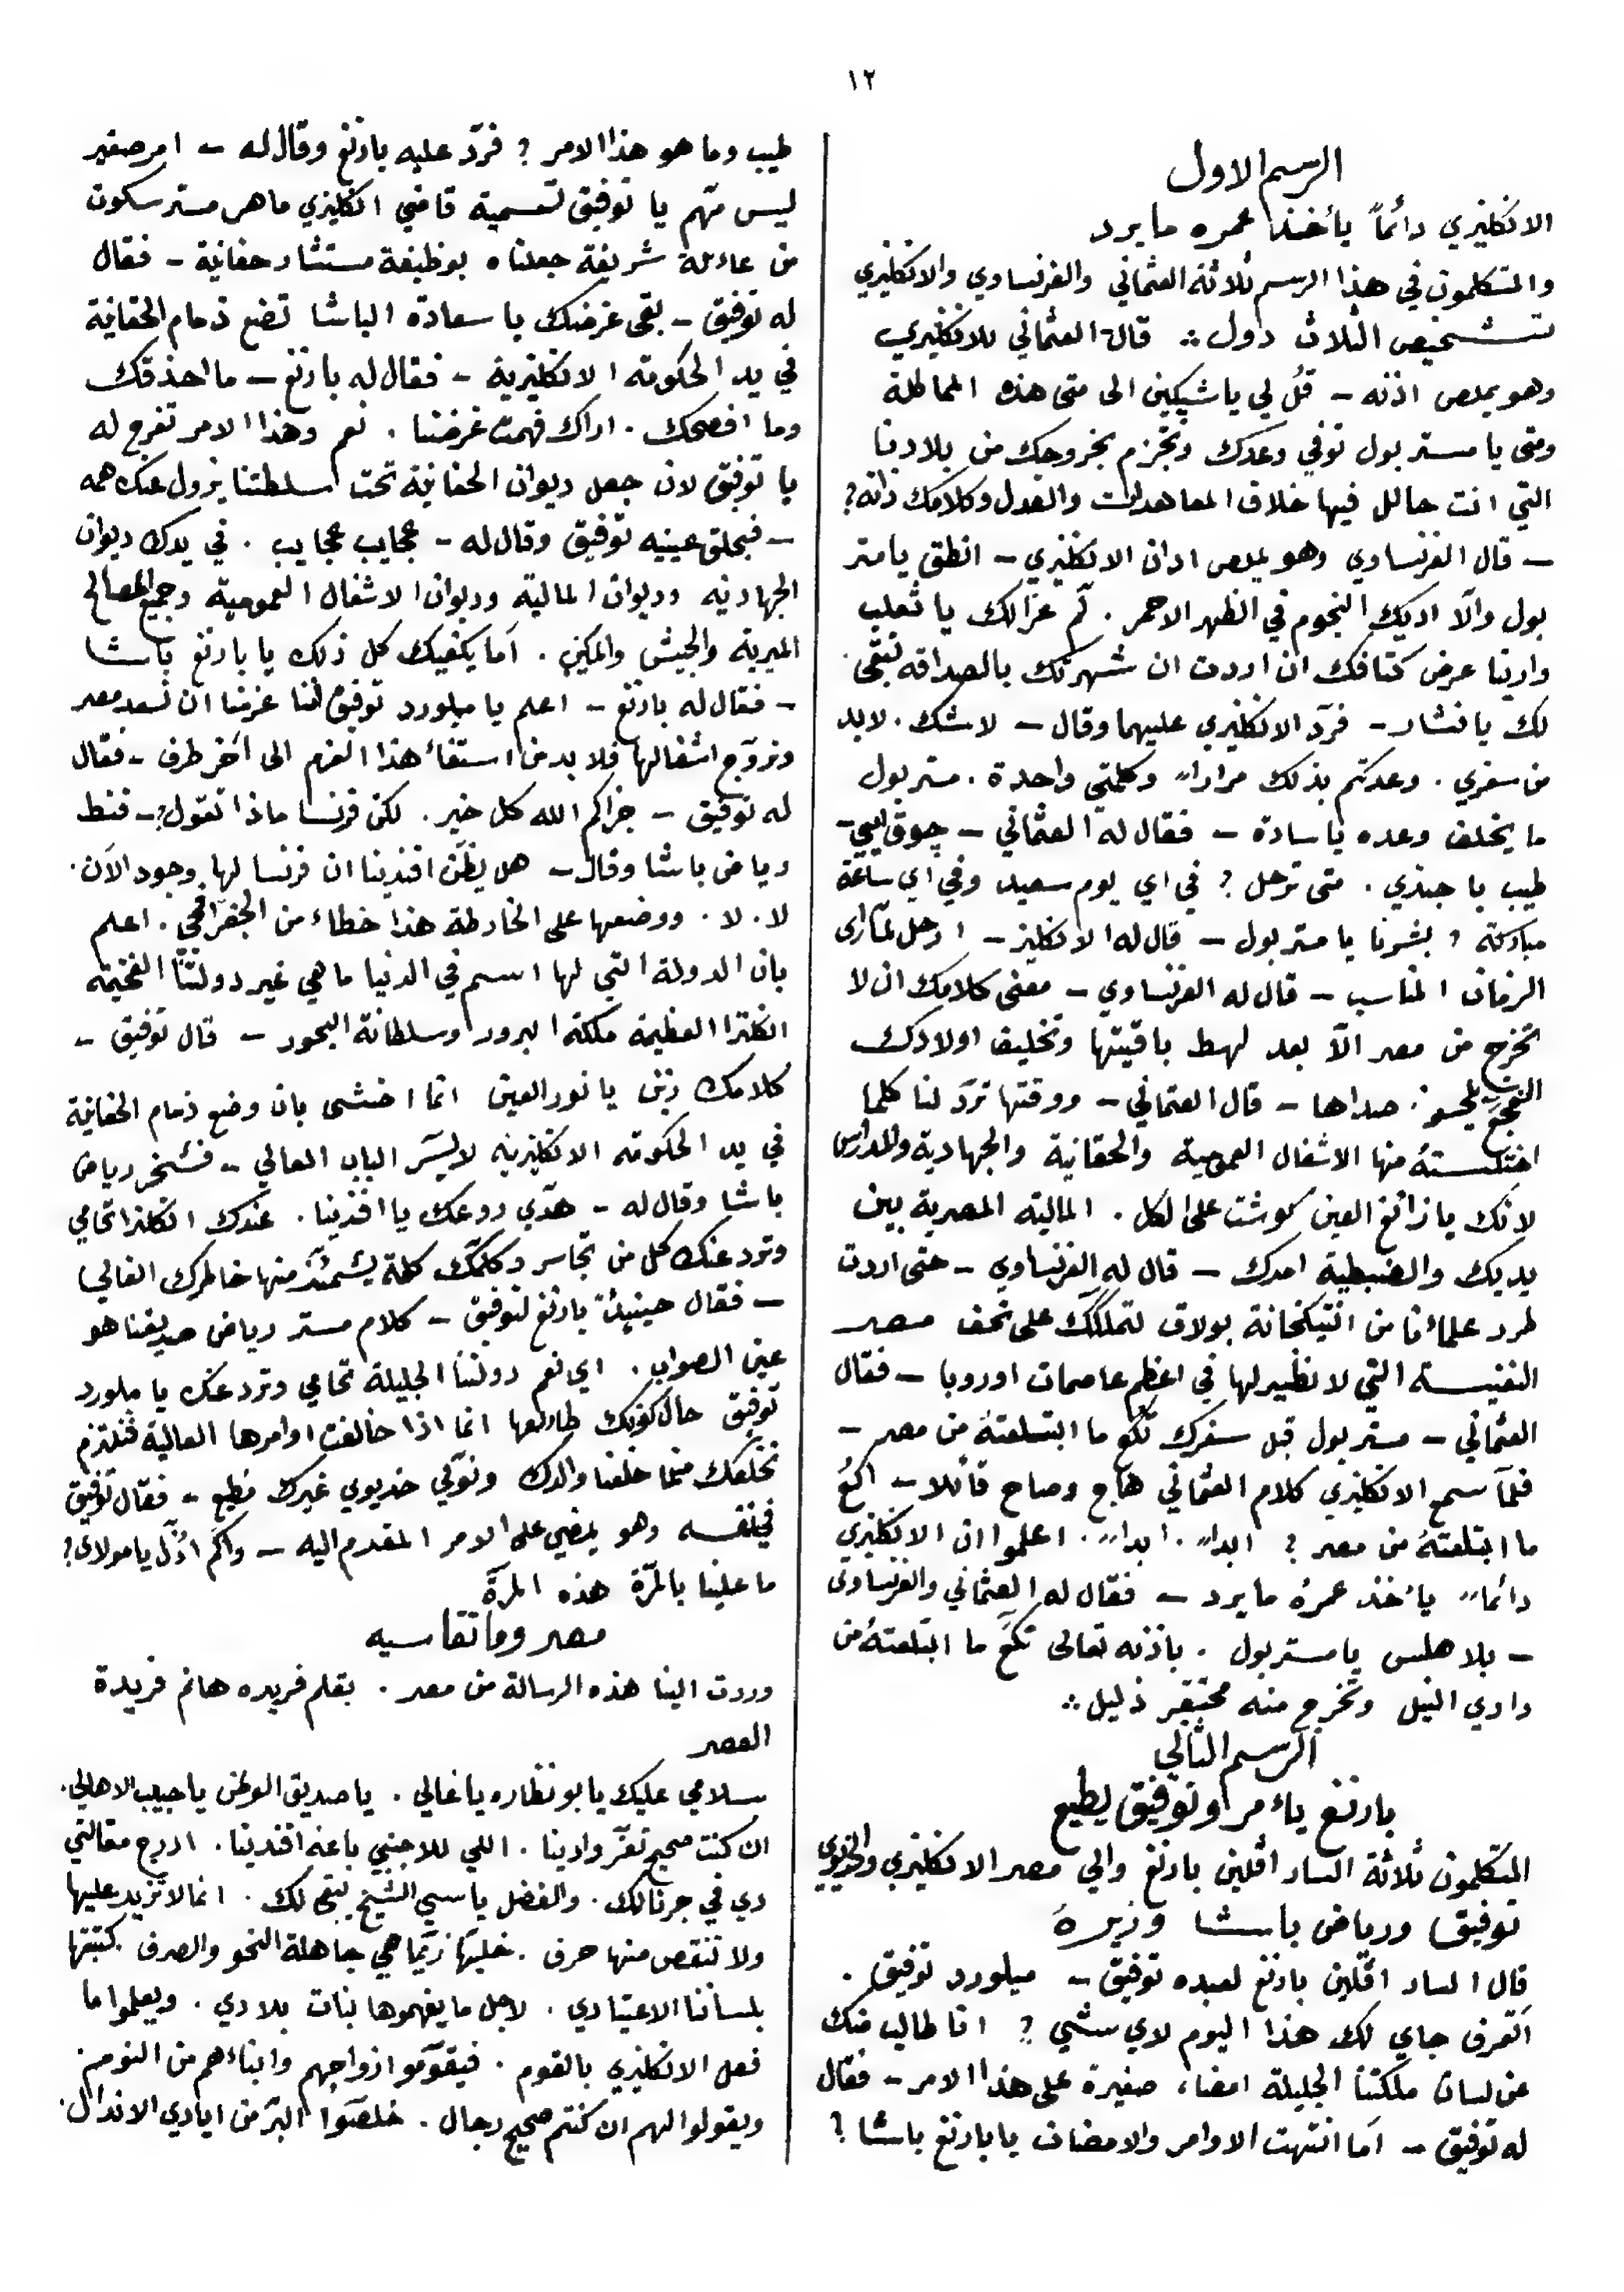 ١٢
الرسم الاول
الانكليزي دائماً يأخذ عمره ما يرد
والمتكلمون في هذا الرسم ثلاثة العثماني والفرنساوي والانكليزي
تشخيص الثلاث دول ؞ قال العثماني للانكليزي
وهو يملص اذنه – قل لي يا شبكين الى متى هذه المماطلة
ومتى يا مستر بول توفي وعدك وتجزم بخروجك من بلادنا
التي انت حالل فيها خلاف المعاهدات والعدل وكلامك ذاته؟
– قال الفرنساوي وهو يملص ادان الانكليزي – انطق يا متر
بول والّا اديك النجوم في الظهر الاحمر . لمّ عزالك يا ثعلب
وارينا عرض كتافك ان اردت ان شهرتك بالصداقه تبقى
لك يا فشار – فردّ الانكليزي عليهما وقال – لا شك . لا بد
من سفري . وعدتكم بذلك مراراً وكلمتي واحدة . مستر بول
ما يخلف وعده يا سادة – فقال له العثماني – چوق ايي –
طيب يا جندي . متى ترحل ؟ في اي يوم سعيد وفي اي ساعة
مباركة ؟ بشرنا يا مستر بول – قال له الانكليز – ارحل لمّا ارى
الزمان المناسب – قال له الفرنساوي – معنى كلامك ان لا
تخرج من مصر الّا بعد لهط باقيتها وتخليف اولادك
صداها – قال العثماني – ووقتها تردّ لنا كلما
اختلسته منها الاشغال العمومية والحقانية والجهادية والمدارس
لانك يا زائغ العين كوشت على الكل . المالية المصرية بين
يديك والضبطية امرك – قال له الفرنساوي – حتى اردت
طرد علماءنا من انتيكخانة بولاق لتملكك على تحف مصر
النفيسة التي لا نظير لها في اعظم عاصمات اوروبا – فقال
العثماني – مستر بول قبل سفرك تكع ما ابتلعتهُ من مصر –
فلمّا سمع الانكليزي كلام العثماني هاج وصاح قائلا – اكعُ
ما ابتلعتهُ من مصر ؟ ابداً . ابداً . اعلموا ان الانكليزي
دائماً يأخذ عمرهُ ما يرد – فقال له العثماني والفرنساوى
– بلا هلس يا مستر بول . باذنه تعالى تكعّ ما ابتلعتهُ من
وادي النيل وتخرج منه محتقر ذليل ؞
الرسم الثاني
بارنغ يأمر وتوفيق يطيع
المتكلمون ثلاثة السار اڤلين بارنغ والي مصر الانكليزي والخديوي
توفيق ورياض باشا وزيره
قال السار اڤلين بارنغ لعبده توفيق – ميلورد توفيق .
اتعرف جاي لك هذا اليوم لاي شي ؟ انا طالب منك
عن لسان ملكتنا الجليلة امضاء صغيرة على هذا الامر – فقال
له توفيق – اما انتهت الاوامر والامضات يا بارنغ باشا ؟
طيب وما هو هذا الامر ؟ فردّ عليه بارنغ وقال له – امر صغير
ليس مهم يا توفيق تسمية قاضي انكليزي ماهر مستر سكوت
من عائلة شريفة جعلناه بوظيفة مستشار حقانية – فقال
له توفيق – بقى غرضك يا سعادة الباشا تضع زمام الحقانية
في يد الحكومة الانكليزية – فقال له بارنغ – ما احذقك
وما افصحك . اراك فهمت غرضنا . نعم وهذا الامر تفرح له
يا توفيق لان جعل ديوان الحقانية تحت سلطتنا يزول عنك همه
– فبحلق عينيه توفيق وقال له – عجايب عجايب . في يدك ديوان
الجهاديه وديوان المالية وديوان الاشغال العمومية وجميع المصالح
الميرية والجيش . اما يكفيك كل ذلك يا بارنغ باشا
– فقال له بارنغ – اعلم يا ميلورد توفيق اننا عزمنا ان نسعد مصر
ونروّج اشغالها فلا بد من استقاء هذا العزم الى آخر طرف – فقال
له توفيق – جزاكم الله كل خير . لكن فرنسا ماذا تقول؟ – فنط
رياض باشا وقال – هل يظنّ افندينا ان فرنسا لها وجود الآن .
لا . لا . ووضعها على الخارطة هذا خطاء من الجغرافجي . اعلم
بان الدولة التي لها اسم في الدنيا ما هي غير دولتنا الفخيمة
انكلترا العظيمة ملكة البرور وسلطانة البحور – قال توفيق –
كلامك زين يا نور العين انما اخشى بان وضع زمام الحقانية
في يد الحكومه الانكليزيه لا يسرّ الباب العالي – فشخر رياض
باشا وقال له – هدّي روعك يا افندينا . عندك انكلترا تحامي
وترد عنك كل من تجاسر وكلمك كلمة يشمئز منها خاطرك الغالي
– فقال حينئذ بارنغ لتوفيق – كلام مستر رياض صديقنا هو
عين الصواب . اي نعم دولتنا الجليلة تحامي وترد عنك يا ملورد
توفيق حال كونك طايعها انما اذا خالفت اوامرها العالية فنلتزم
نخلعك مثلما خلعنا والدك ونولّي خديوي غيرك مطيع – فقال توفيق
في نفسه وهو يمضي على الامر المقدم اليه – واكم اذلّ يا مولاى ؟
ما علينا بالمرّة هذه المرة
مصر وما تقاسيه
وردت الينا هذه الرسالة من مصر . بقلم فريده هانم فريدة
العصر
سلامي عليك يا بو نظاره يا غالي . يا صديق الوطن يا حبيب الاهالي .
ان كنت صحيح تعزّ وادينا . اللي للاجنبي باعه افندينا . ادرج مقالتي
دي في جرنالك . والفضل يا سي الشيخ يبقى لك . انما لا تزيد عليها
ولا تنقص منها حرف . خليها زيّما هي جاهلة النحو والصرف . كتبتها
بلساننا الاعتيادي . لاجل ما يفهموها بنات بلادي . ويعلموا ما
فعل الانكليزي بالقوم . فيقوّموا ازواجهم وابناءهم من النوم .
ويقولوا لهم ان كنتم صحيح رجال . خلصوا البرّ من ايادي الاندال .